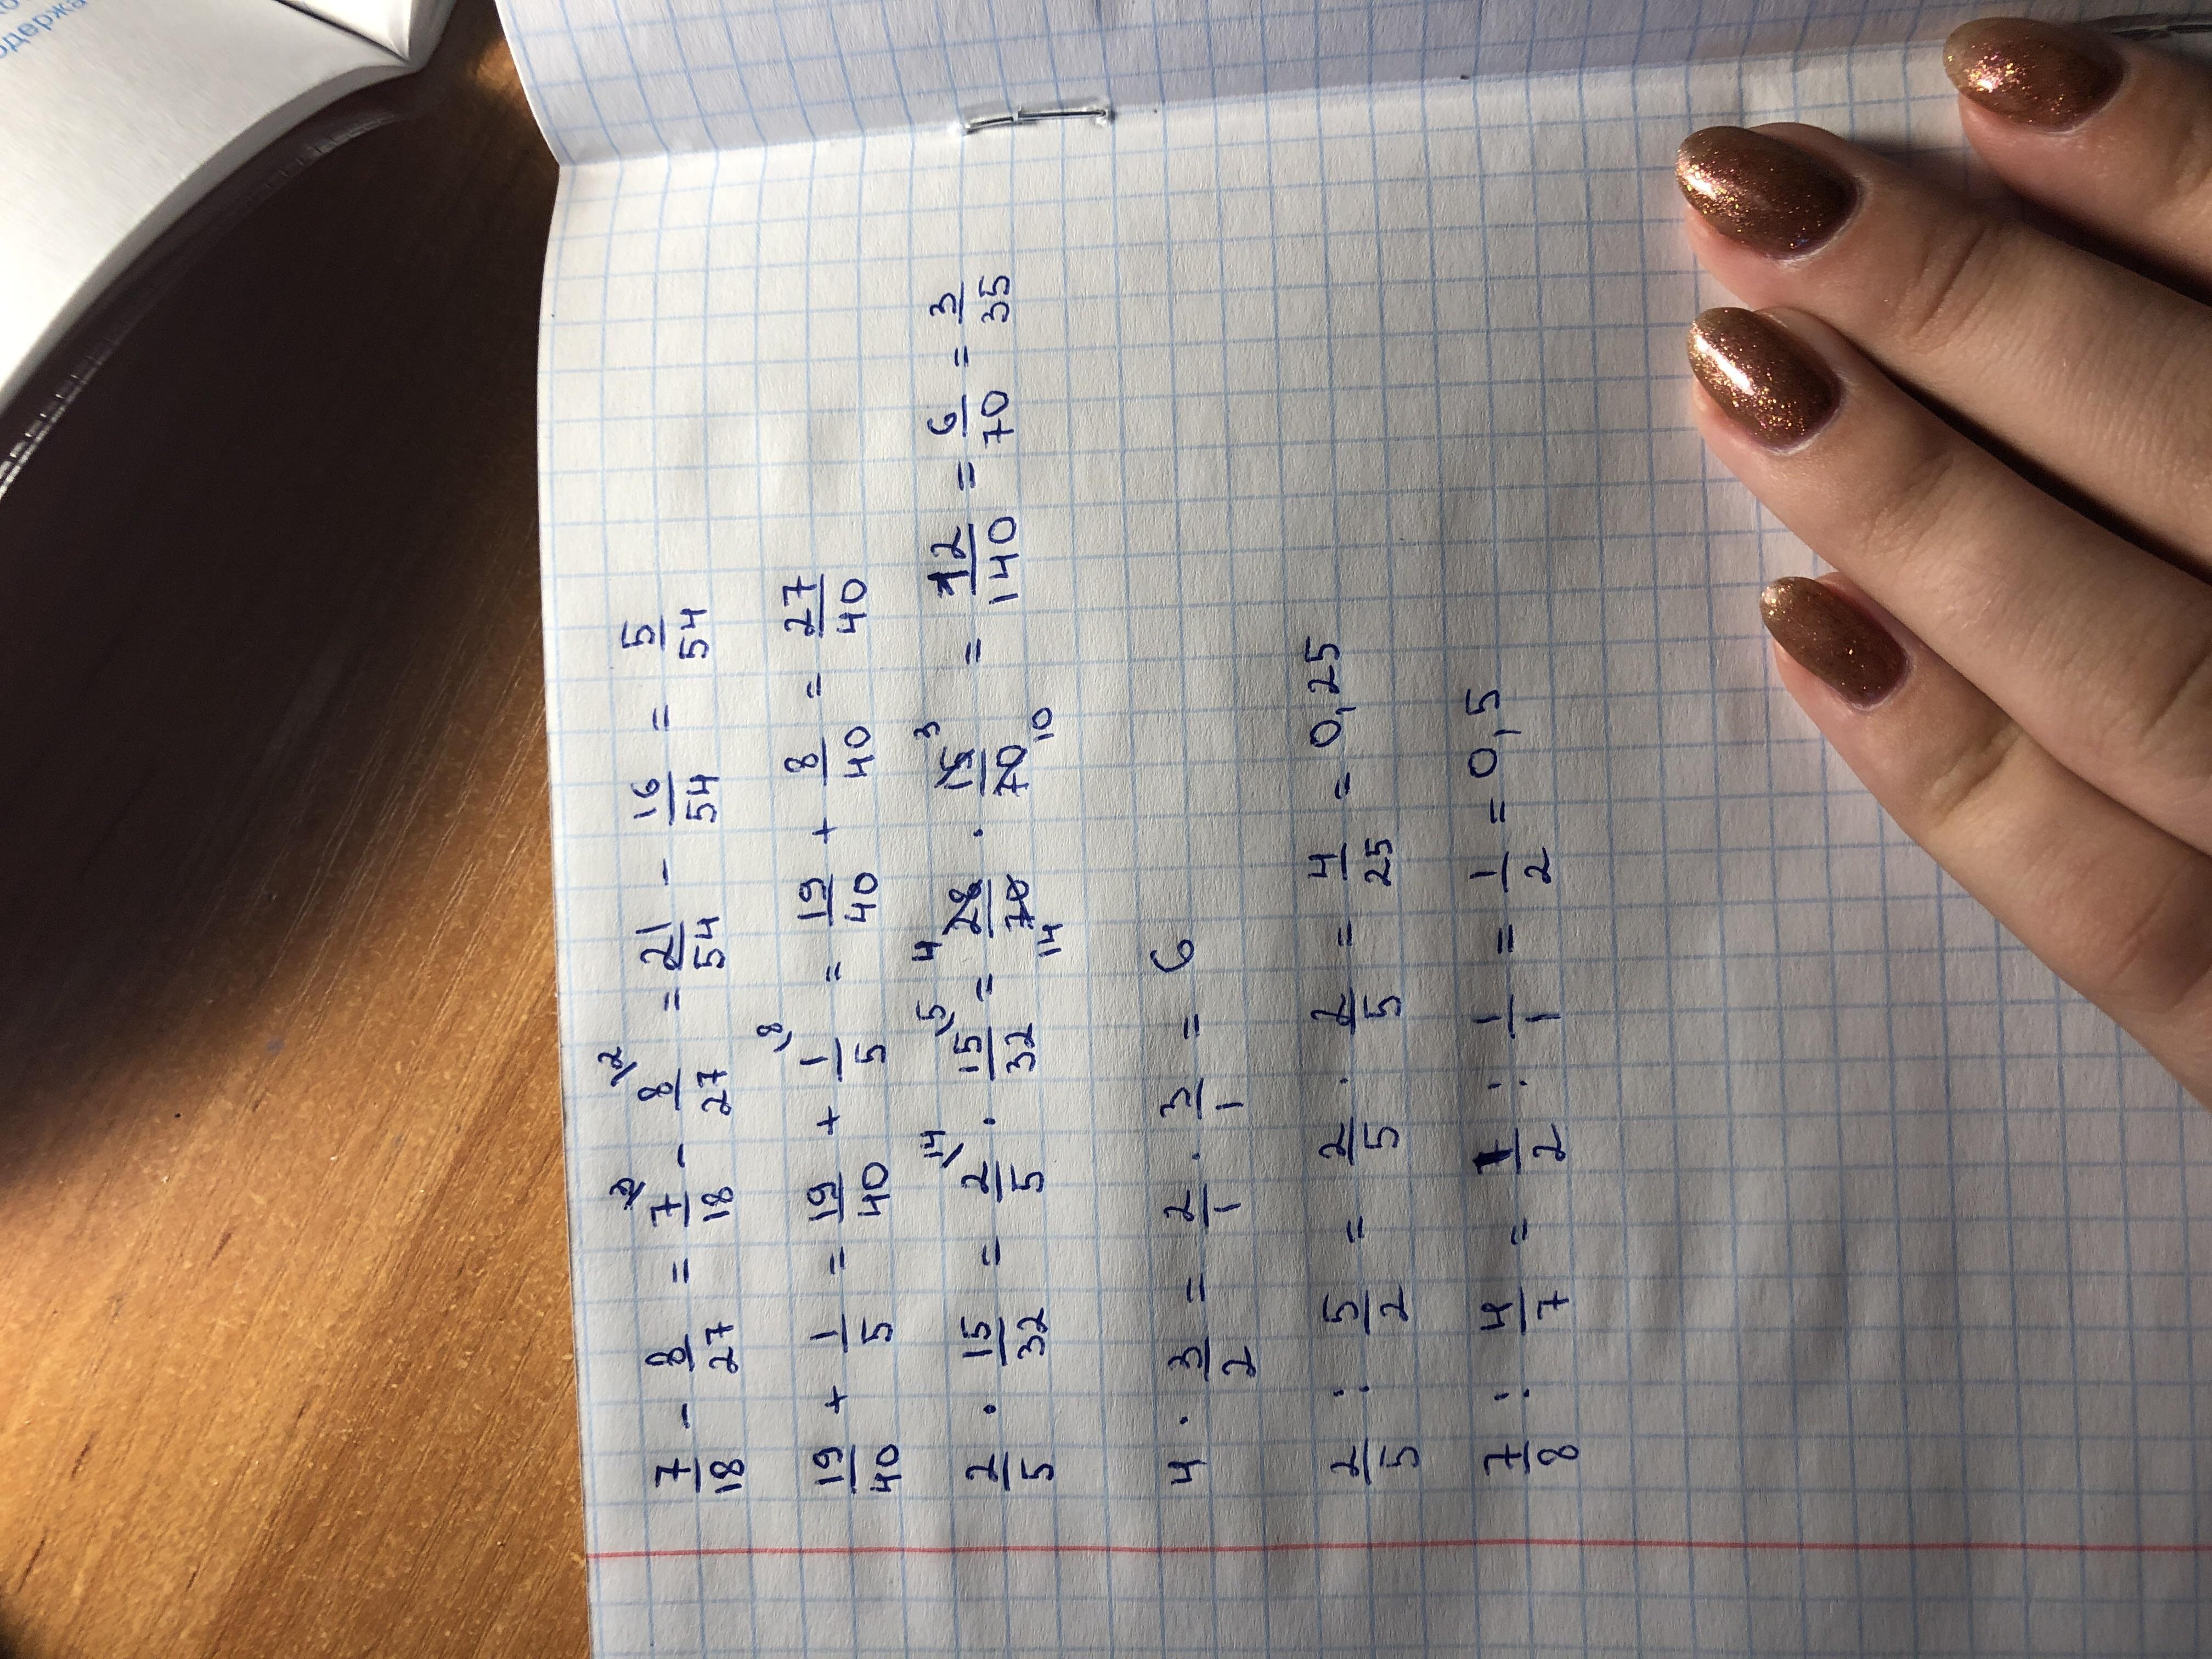 7/18 - 8/27 = 7/18 - 8/27 \2 = 21/54 - 16/54 = 5/54
19/40 + 1/5 = 19/40 + 1/5 \8 = 19/40 + 8/40 = 27/40
2/5 · 15/32 = 2/5 \14 · 15/32 \5 = 4 28/70 14 · 15/70 3 10 = 12/140 = 6/70 = 3/35
4 · 3/2 = 2/1 · 3/1 = 6
2/5 : 5/2 = 2/5 · 2/5 = 4/25 = 0,25
7/8 : 4/7 = 1/2 : 1/1 = 1/2 = 0,5